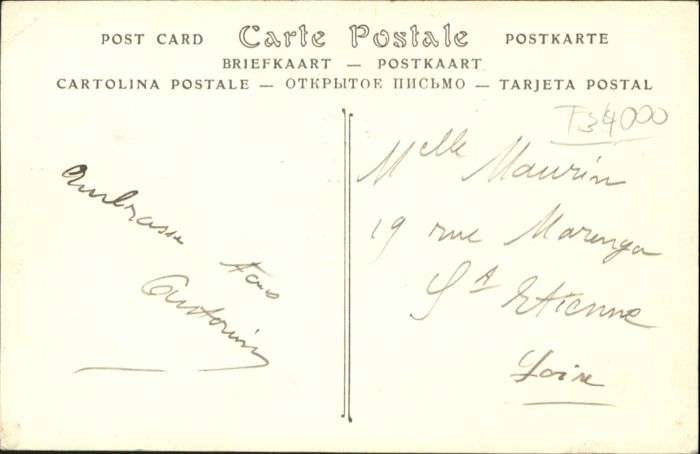 POST CARD Carte Postale POSTKARTE
BRIEFKAART — POSTKAART
CARTOLINA POSTALE — ОТКРЫТОЕ ПИСЬМО — TARJETA POSTAL
T34000
Melle Maurin
19 rue Marengo
St Etienne
Loire
Embrasse
tous
Antonin